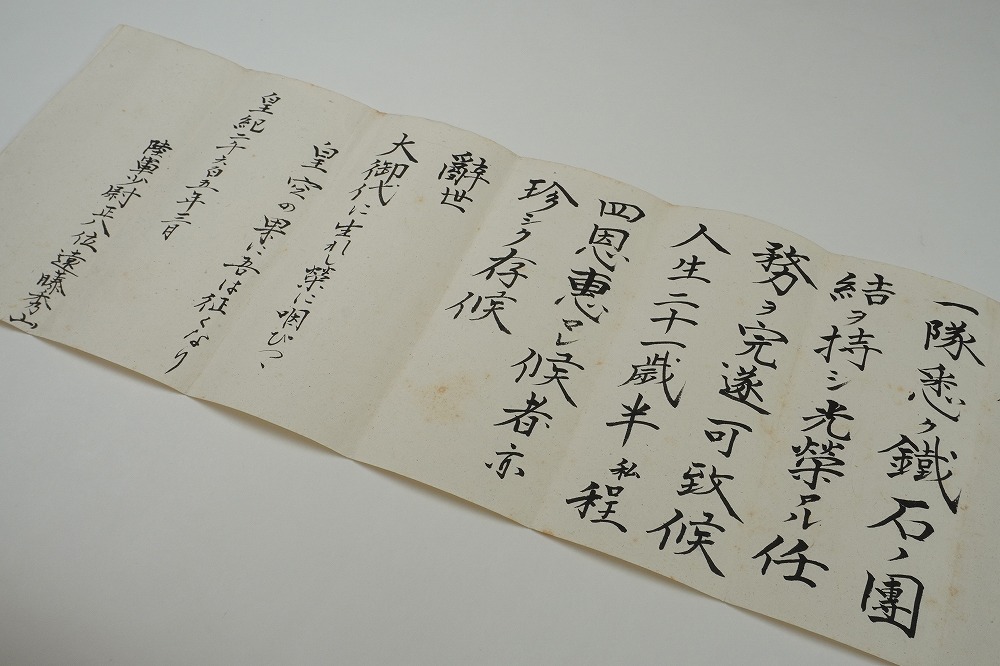 一隊悉ク鐵石ノ團
結ヲ持シ光榮アル任
務ヲ完遂可致候
人生二十一歳半私程
四恩惠マレ候者亦
珍シク存候
辭世
大御代に生れし榮に咽びつゝ
皇空の果に吾は征くなり
皇紀二千六百五年二月
陸軍少尉正八位遠藤秀山